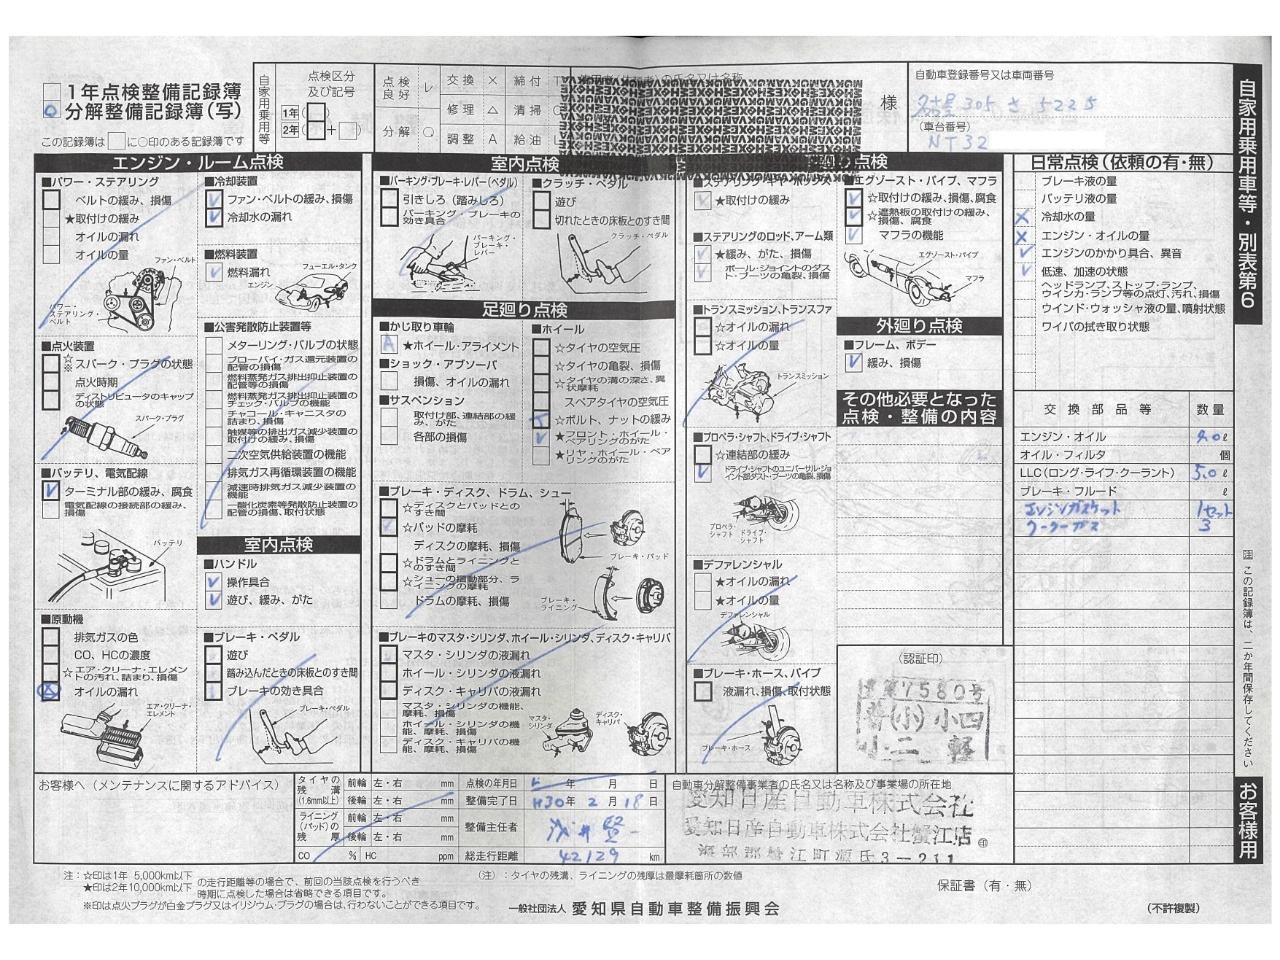 1年点検整備記録簿
分解整備記録簿(写)
この記録簿は□に○印のある記録簿です
自家用乗用等
点検区分及び記号
1年(
2年(□+□)
点検良好 レ 交換 × 締付 T
修理 △ 清掃
分解 ○ 調整 A 給油 L
様
自動車登録番号又は車両番号
名古屋 305 さ 5225
(車台番号)
NT32
自家用乗用車等・別表第6
エンジン・ルーム点検
■パワー・ステアリング
ベルトの緩み、損傷
★取付けの緩み
オイルの漏れ
オイルの量
ファン・ベルト
パワー・ステアリング・ベルト
■点火装置
☆※スパーク・プラグの状態
点火時期
ディストリビュータのキャップの状態
スパーク・プラグ
■バッテリ、電気配線
ターミナル部の緩み、腐食
電気配線の接続部の緩み、損傷
バッテリ
■原動機
排気ガスの色
CO、HCの濃度
☆エア・クリーナ・エレメントの汚れ、詰まり、損傷
オイルの漏れ
エア・クリーナ・エレメント
■冷却装置
ファン・ベルトの緩み、損傷
冷却水の漏れ
■燃料装置
燃料漏れ
フューエル・タンク
エンジン
■公害発散防止装置等
メターリング・バルブの状態
ブローバイ・ガス還元装置の配管の損傷
燃料蒸発ガス排出抑止装置の配管等の損傷
燃料蒸発ガス排出抑止装置のチェック・バルブの機能
チャコール・キャニスタの詰まり、損傷
触媒等の排出ガス減少装置の取付けの緩み、損傷
二次空気供給装置の機能
排気ガス再循環装置の機能
減速時排気ガス減少装置の機能
一酸化炭素等発散防止装置の配管の損傷、取付状態
室内点検
■ハンドル
操作具合
遊び、緩み、がた
■ブレーキ・ペダル
遊び
踏み込んだときの床板とのすき間
ブレーキの効き具合
ブレーキ・ペダル
室内点検
■パーキング・ブレーキ・レバー(ペダル)
引きしろ(踏みしろ)
パーキング・ブレーキの効き具合
パーキング・ブレーキ・レバー
■クラッチ・ペダル
遊び
切れたときの床板とのすき間
クラッチ・ペダル
足廻り点検
■かじ取り車輪
A ★ホイール・アライメント
■ショック・アブソーバ
損傷、オイルの漏れ
■サスペンション
取付け部、連結部の緩み、がた
各部の損傷
■ホイール
☆タイヤの空気圧
☆タイヤの亀裂、損傷
☆タイヤの溝の深さ、異状摩耗
スペアタイヤの空気圧
☆ボルト、ナットの緩み
★フロント・ホイール・ベアリングのがた
★リヤ・ホイール・ベアリングのがた
■ブレーキ・ディスク、ドラム、シュー
☆ディスクとパッドとのすき間
☆パッドの摩耗
ディスクの摩耗、損傷
☆ドラムとライニングとのすき間
☆シューの摺動部分、ライニングの摩耗
ドラムの摩耗、損傷
ブレーキ・パッド
ブレーキ・ライニング
■ブレーキのマスタ・シリンダ、ホイール・シリンダ、ディスク・キャリパ
マスタ・シリンダの液漏れ
ホイール・シリンダの液漏れ
ディスク・キャリパの液漏れ
マスタ・シリンダの機能、摩耗、損傷
ホイール・シリンダの機能、摩耗、損傷
ディスク・キャリパの機能、摩耗、損傷
マスタ・シリンダ
ディスク・キャリパ
★取付けの緩み
■ステアリングのロッド、アーム類
★緩み、がた、損傷
ボール・ジョイントのダスト・ブーツの亀裂、損傷
■トランスミッション、トランスファ
☆オイルの漏れ
☆オイルの量
トランスミッション
■プロペラ・シャフト、ドライブ・シャフト
☆連結部の緩み
ドライブ・シャフトのユニバーサル・ジョイント部ダスト・ブーツの亀裂、損傷
プロペラ・シャフト
ドライブ・シャフト
■デファレンシャル
★オイルの漏れ
★オイルの量
デファレンシャル
■ブレーキ・ホース、パイプ
液漏れ、損傷、取付状態
ブレーキ・ホース
■エグゾースト・パイプ、マフラ
☆取付けの緩み、損傷、腐食
☆遮熱板の取付けの緩み、損傷、腐食
マフラの機能
エグゾースト・パイプ
マフラ
外廻り点検
■フレーム、ボデー
緩み、損傷
その他必要となった点検・整備の内容
(認証印)
第7580号
普(小)小四
小二 軽
日常点検(依頼の有・無)
ブレーキ液の量
バッテリ液の量
冷却水の量
エンジン・オイルの量
エンジンのかかり具合、異音
低速、加速の状態
ヘッドランプ、ストップ・ランプ、ウインカ・ランプ等の点灯、汚れ、損傷
ウインド・ウォッシャ液の量、噴射状態
ワイパの拭き取り状態
交換部品等 数量
エンジン・オイル ℓ
オイル・フィルタ 個
LLC(ロング・ライフ・クーラント) 5.0ℓ
ブレーキ・フルード ℓ
エンジンガスケット 1セット
クーラーガス 3
注 この記録簿は、二か年間保存してください
お客様用
お客様へ(メンテナンスに関するアドバイス)
タイヤの残溝(1.6mm以上) 前輪 左・右 mm
後輪 左・右 mm
ライニング(パッド)の残厚 前輪 左・右 mm
後輪 左・右 mm
CO % HC ppm
点検の年月日 年 月 日
整備完了日 H30年 2月 18日
整備主任者
総走行距離 42129 km
自動車分解整備事業者の氏名又は名称及び事業場の所在地
愛知日産自動車株式会社
愛知日産自動車株式会社蟹江店
海部郡蟹江町源氏3-211
注:☆印は1年 5,000km以下
★印は2年10,000km以下
の走行距離等の場合で、前回の当該点検を行うべき時期に点検した場合は省略できる項目です。
※印は点火プラグが白金プラグ又はイリジウム・プラグの場合は、行わないことができる項目です。
(注):タイヤの残溝、ライニングの残厚は最摩耗箇所の数値
保証書(有・無)
一般社団法人 愛知県自動車整備振興会
(不許複製)